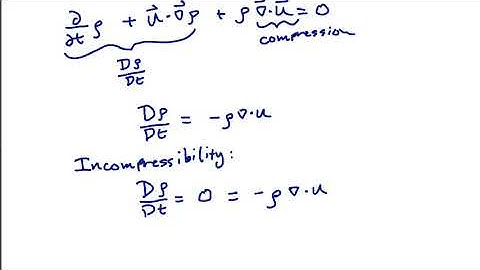 ∂/∂t ρ + u⃗·∇⃗ρ + ρ ∇⃗·u⃗ = 0
Dρ/Dt compression
Dρ/Dt = -ρ∇·u
Incompressibility:
Dρ/Dt = 0 = -ρ∇·u